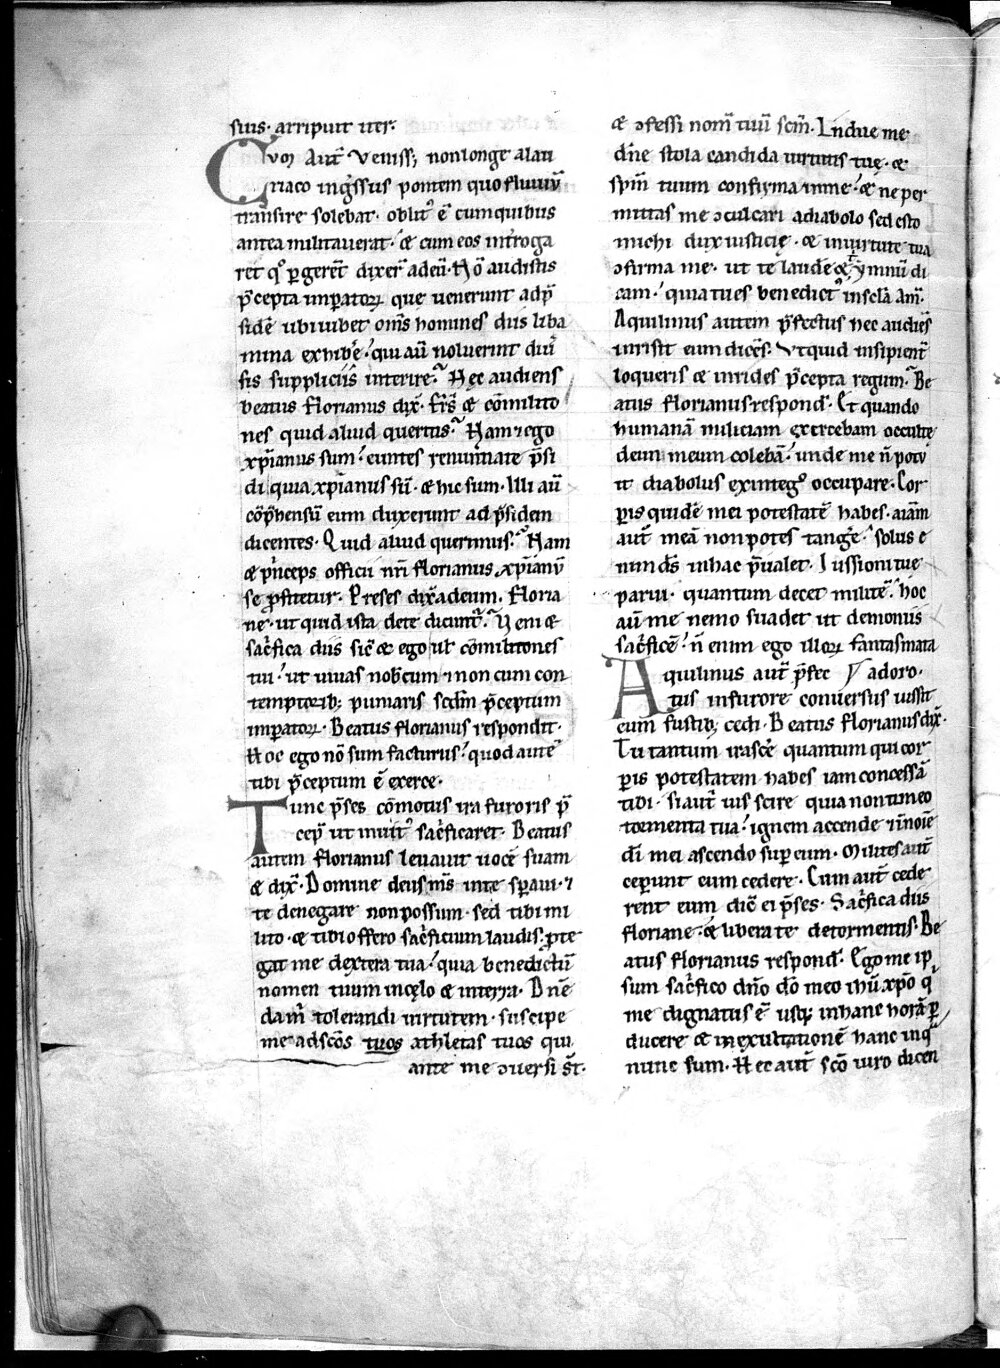 suis. arripuit iter.
Cvoꝫ Aut̄ Veniss; non longe a lau
riaco ingr̄ssus pontem quo fluuiū
transire solebat. oblitꝰ ē cum quibus
antea militauerat. & cum eos int̄roga
ret qͦ pergerēt dixer̄ ad eū. Nō audistis
p̄cepta imp̄atoꝝ que uenerunt ad p̄
sidē ubi iubet om̄s homines diis liba
mina exhibe᷑. qui aū noluerint diū
sis suppliciis interire. Hec audiens
beatus florianus dix̄. fr̄s & cōmilito
nes quid aliud queritis. Nam & ego
xp̄ianus sum. euntes renuntiate p̄si
di quia xp̄ianus sū. & hic sum. Illi aū
cōp̄hensū eum duxerunt ad p̄sidem
dicentes. Quid aliud querimus. Nam
& p̄nceps officii nr̄i florianus xp̄ianū
se ꝓfitetur. Preses dix̄ ad eum. Floria
ne. ut quid ista de te dicunt̄. Veni &
sac̄fica diis sic̄ & ego ul̄ cōmilitones
tui. ut uiuas nobcum ⁊ non cum con
temptorib; puniaris scdm̄ p̄ceptum
imp̄atoꝝ. Beatus florianus respondit.
Hoc ego nō sum facturus. quod autē
tibi p̄ceptum ē exerce.
Tunc p̄ses cōmotus ira furoris p̄
cep̄ ut inuitꝰ sac̄ficaret. Beatus
autem florianus leuauit uocē suam
& dix̄. Domine deus ms̄ in te sp̄aui. ⁊
te denegare non possum. sed tibi mi
lito. & tibi offero sac̄ficium laudis. ꝓte
gat me dextera tua. quia benedictū
nomen tuum in cęlo & in terra. Dn̄e
da m̄ tolerandi uirtutem. suscipe
me ad sc̄os tuos athletas tuos qui
ante me ɔuersi st̄.
& ɔfessi nom̄ tuū scm̄. Indue me
dn̄e stola candida uirtutis tuę. &
sp̄m tuum confirma in me. & ne per
mittas me ɔculcari a diabolo sed esto
michi dux iusticię. & in uirtute tua
ɔfirma me. ut te laudē & ymnū di
cam. quia tu es benedictꝰ in scl̄a am̄.
Aquilinus autem p̄fectus hec audiēs
inrisit eum dicēs. Vt quid insipient̄
loqueris & inrides p̄cepta regum. Be
atus florianus respond̄. Et quando
humanā miliciam exercebam occulte
deum meum colebā. unde me n̄ potu
it diabolus ex integꝰ occupare. Cor
ꝑis quidē mei potestatē habes. aīam
aut̄ meā non potes tange᷑. solus e
nim ds̄ in hac p̄ualet. Iussioni tue
parui. quantum decet militē. hoc
aū me nemo suadet ut demoniis
sac̄ficē. n̄ enim ego illoꝝ fantasmata
Aquilinus aut̄ p̄fec adoro.
tus in furore conuersus iussit
eum fustib; cedi. Beatus florianus dix̄.
Tu tantum irasce᷑ quantum qui cor
ꝑis potestatem habes iam concessā
tibi. si aut̄ uis scire quia non timeo
tormenta tua. ignem accende ⁊ in noīe
dī mei ascendo super eum. Milites aut̄
ceperunt eum cedere. Cum aut̄ cede
rent eum dic̄ ei p̄ses. Sac̄fica diis
floriane. & libera te de tormentis. Be
atus florianus respond̄. Ego me ip
sum sac̄fico dn̄o dō meo ihū xp̄o q
me dignatus ē usq; in hanc horā ꝑ
ducere & in exultationē hanc in q̄
nunc sum. Hec aut̄ scō uiro dicen